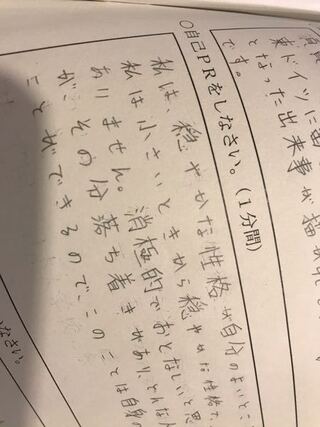 東ドイツに
となった出来事が描か
です。
○自己PRをしなさい。(1分間)
私は、穏やかな性格が自分のよいところ
私は小さいときから穏やかな性格で、
ありません。消極的でおとなしいと思
が、その分落ち着きがあり、どんな
ことができるのでこのことは自身の
なさい。